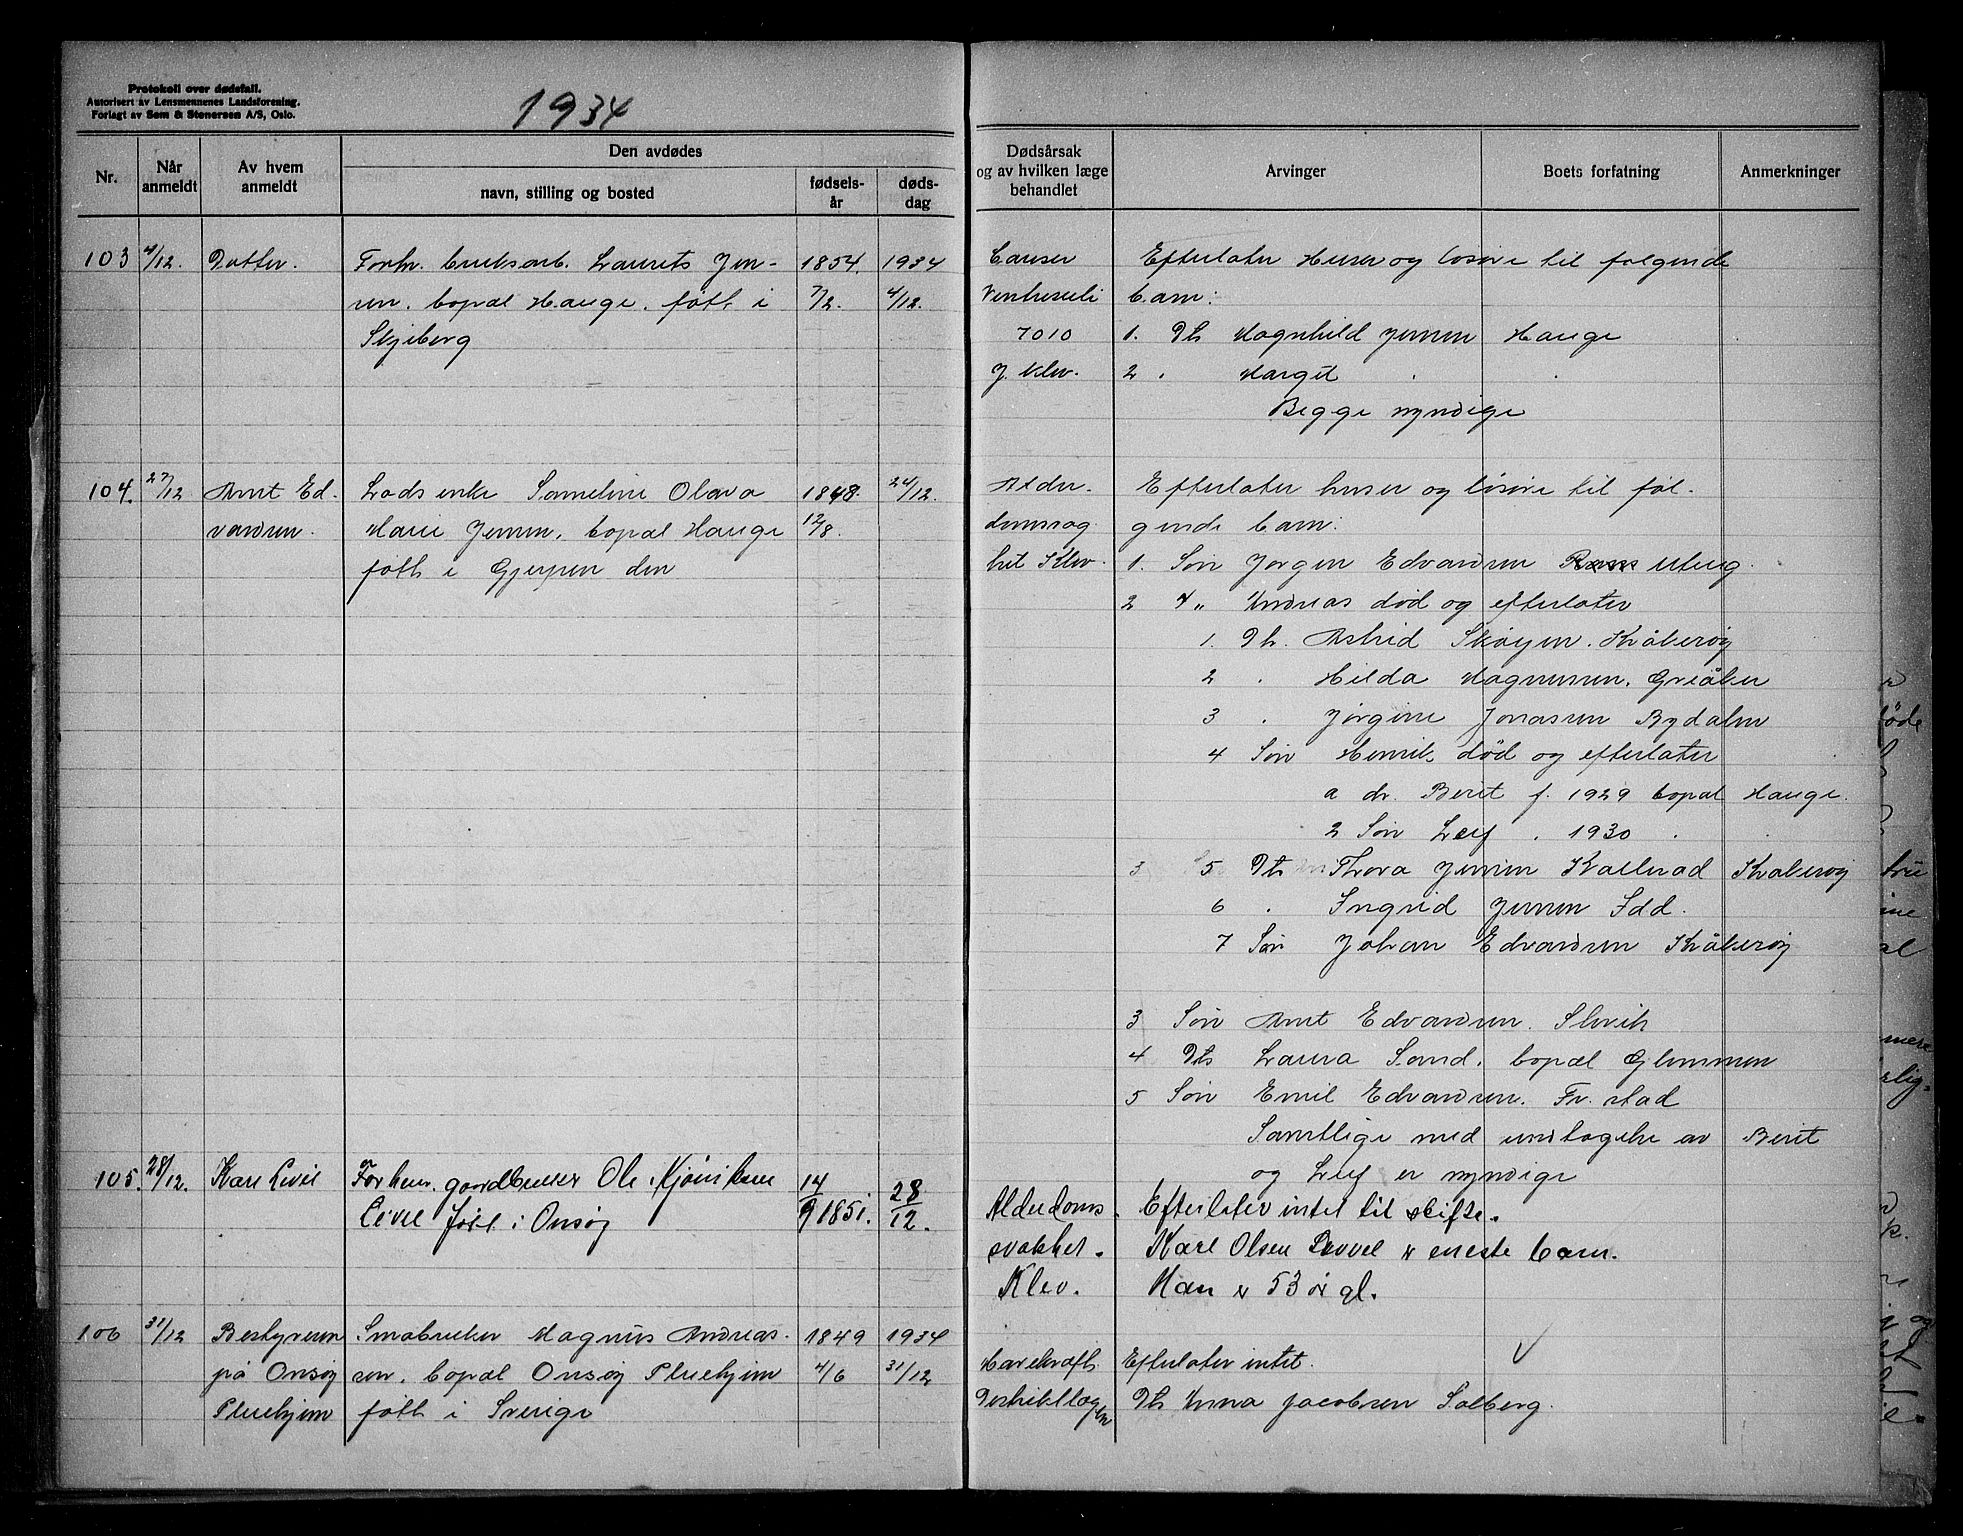 Protokoll over dødsfall.
Autorisert av Lensmennenes Landsforening.
Forlagt av Sem & Stenersen A/S, Oslo.
1934
Nr.
Når anmeldt
Av hvem anmeldt
Den avdødes
navn, stilling og bosted
fødsels-år
døds-dag
Dødsårsak og av hvilken læge behandlet
Arvinger
Boets forfatning
Anmerkninger
103 4/12. Datter. Forhv. bruksarb. Laurits Jen- 1854. 1934
sen. bopæl Hauge. født i 7/2. 4/12.
Skjeberg
Cancer Efterlater Huser og løsøre til følgende
barn:
7010 1. Dtr Magnhild Jensen Hauge
J. Klev. 2 . Margit . .
Begge myndige
104. 27/12 Arnt Ed- Lods enke Sanneline Olava 1848. 24/12.
vardsen. Marie Jensen, bopæl Hauge 12/8.
født i Gjerpen den
Alder- Efterlater huser og løsøre til føl-
domssvag gende barn:
het Klev. 1. Søn Jørgen Edvardsen Utvig.
2 4 " Andreas død og efterlater
1. Dtr. Astrid Skøyen. Kråkerøy
2 . Hilda Magnussen. Greåker
3 . Jørgine Jonassen Rydalen
4 Søn Henrik død og efterlater
a dr. Berit f. 1929 bopæl Hauge.
2 Søn Leif . 1930 . .
3 5 Dtr Thora Jensen Kallerød Kråkerøy
6 . Ingrid Jensen Idd.
7 Søn Johan Edvardsen Kråkerøy
3 Søn Arnt Edvardsen. Slevik
4 Dtr Laura Sand. bopæl Glemmen
5 Søn Emil Edvardsen. Fr. stad
Samtlige med undtagelse av Berit
og Leif er myndige
105. 28/12. Kare Levil Forhenv. gaardbruker Ole Kjølviksen 14/9 1851. 28/12.
Level født i Onsøy
Alderdoms- Efterlater intet til skifte.
svakhet. Karl Olsen Levvel er eneste barn.
Klev. Han er 53 år gl.
106 31/12 Bestyreren Småbruker Magnus Andreas- 1849 1934
på Onsøy sen. bopæl Onsøy Pleiehjem 4/6 31/12
Pleiehjem født i Sverige
Mavekræft Efterlater intet.
Distriktlægen Dtr Anna Jacobsen Solberg.